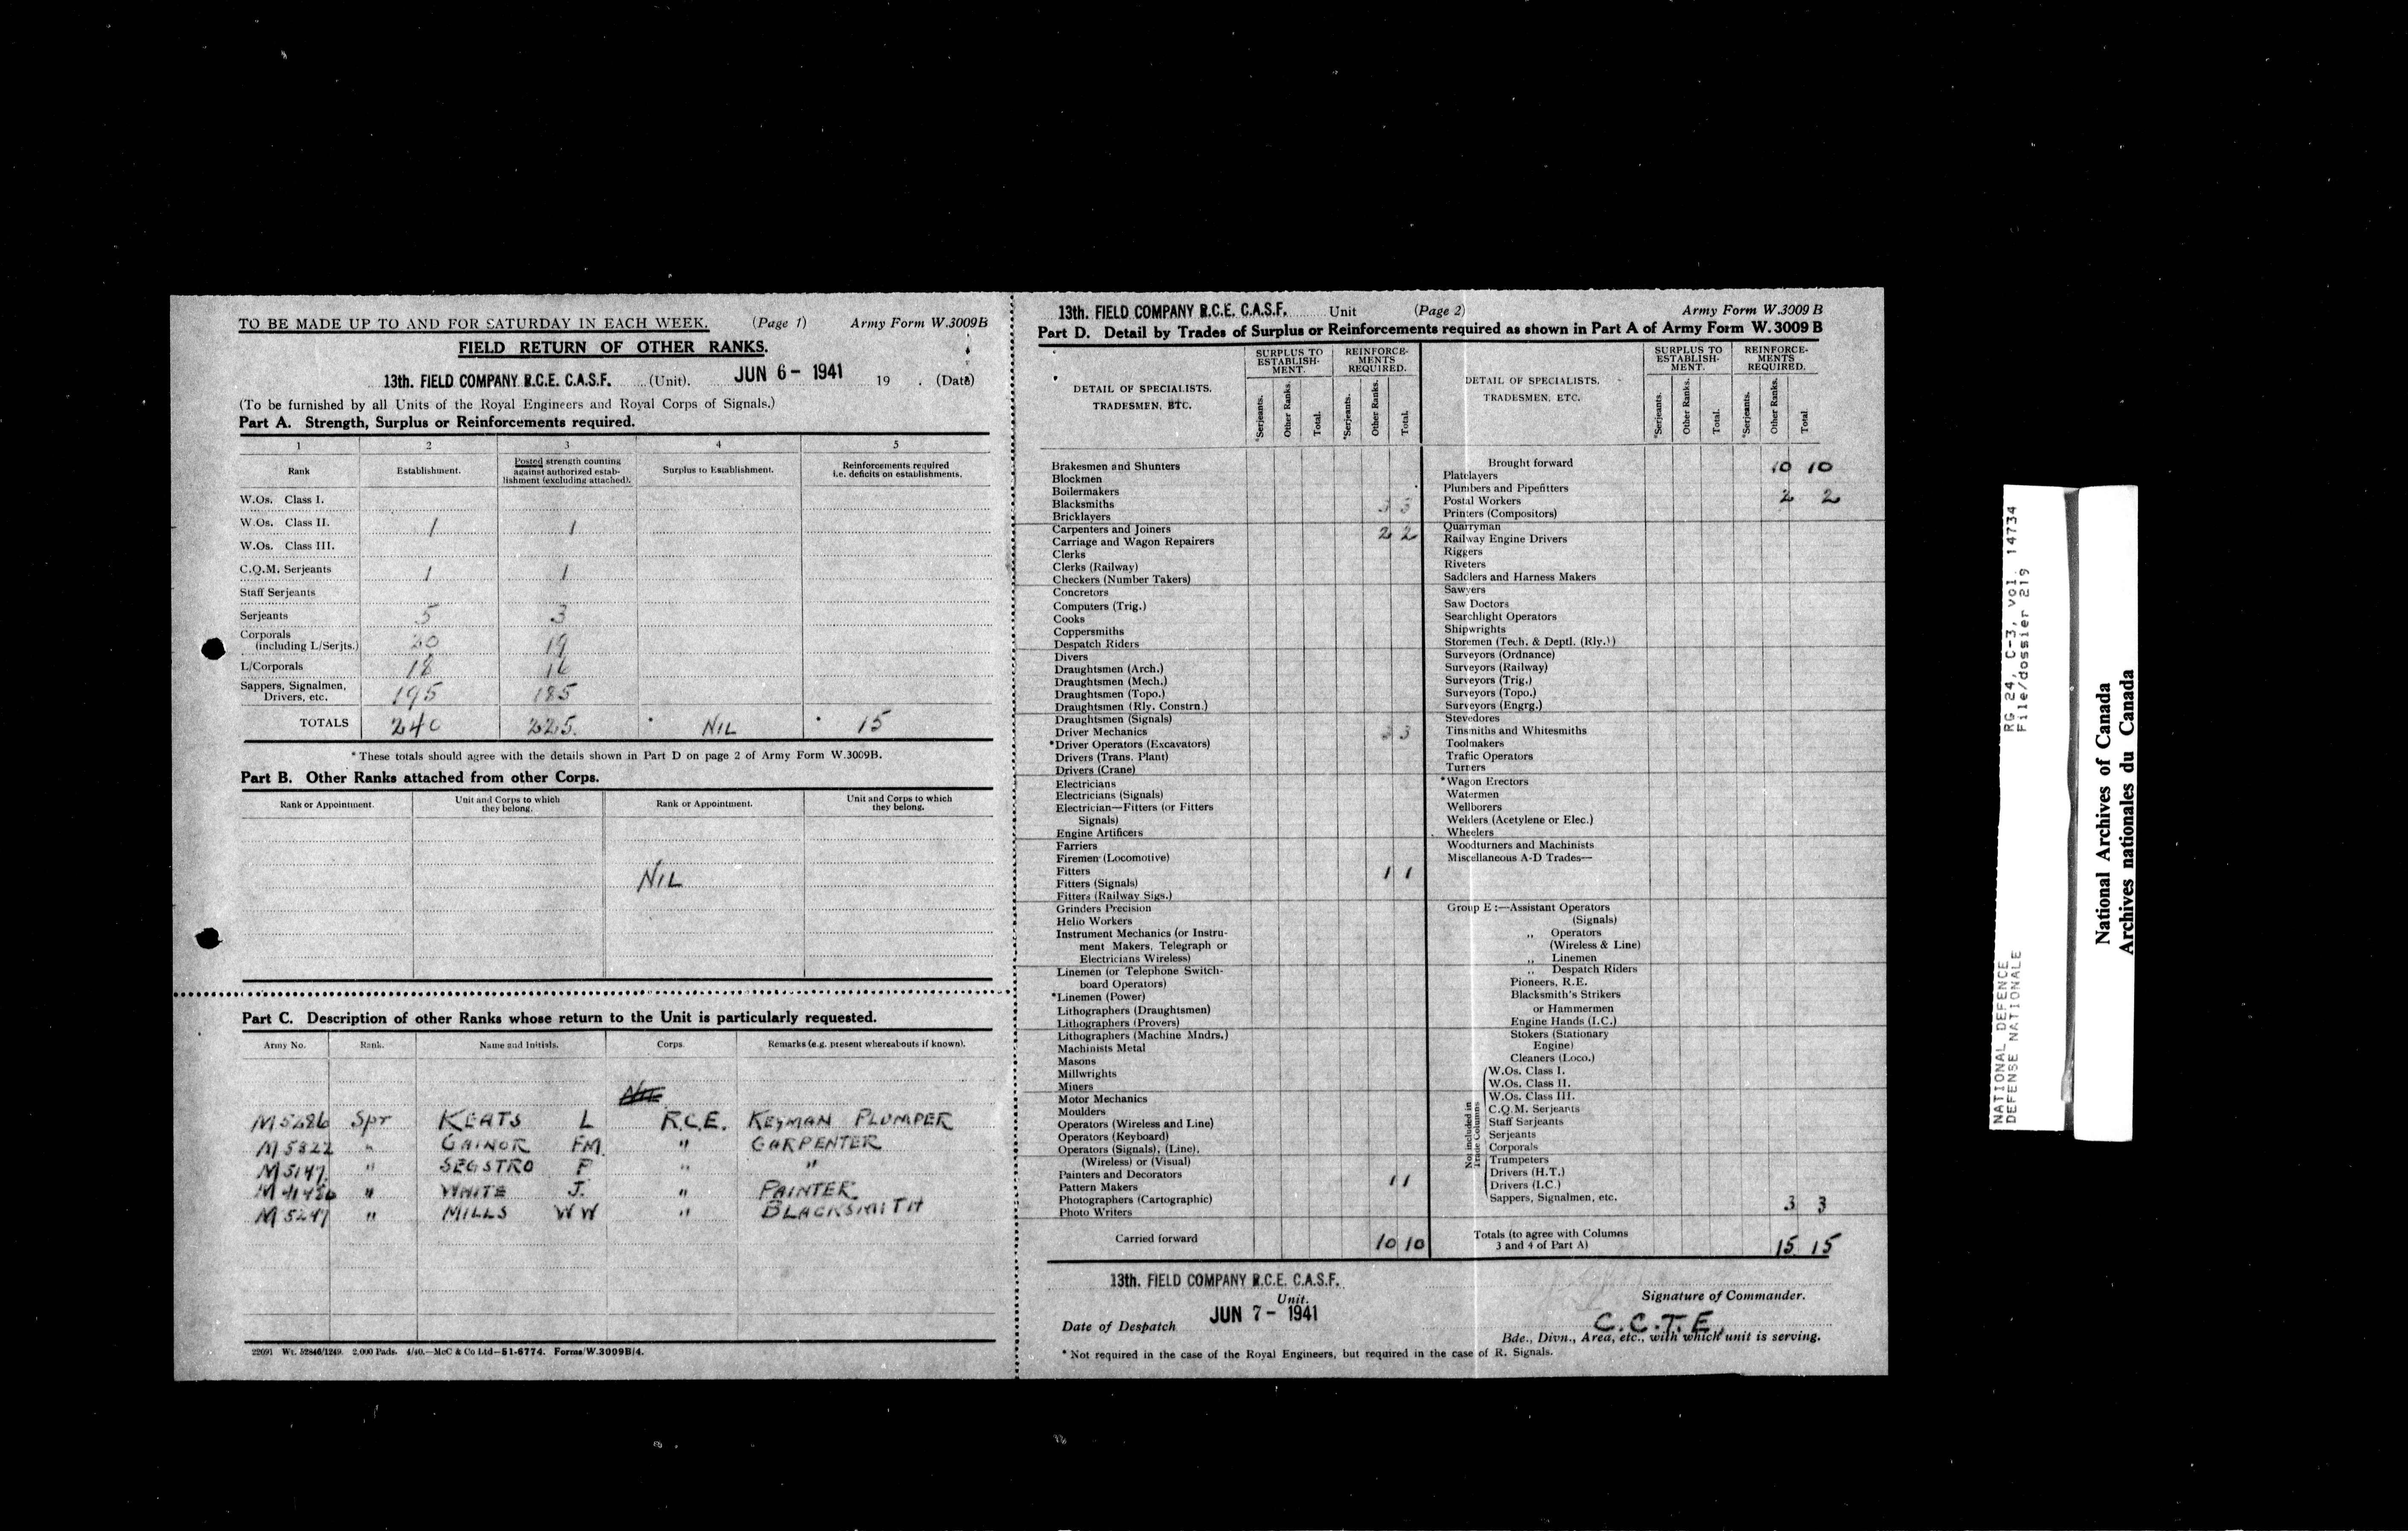 TO BE MADE UP TO AND FOR SATURDAY IN EACH WEEK. (Page 1) Army Form W.3009B
FIELD RETURN OF OTHER RANKS.
13th. FIELD COMPANY R.C.E. C.A.S.F. (Unit). JUN 6 - 1941 19 . (Date)
(To be furnished by all Units of the Royal Engineers and Royal Corps of Signals.)
Part A. Strength, Surplus or Reinforcements required.
1 2 3 4 5
Rank Establishment. Posted strength counting against authorized establishment (excluding attached). Surplus to Establishment. Reinforcements required i.e. deficits on establishments.
W.Os. Class I.
W.Os. Class II. 1 1
W.Os. Class III.
C.Q.M. Serjeants 1 1
Staff Serjeants
Serjeants 5 3
Corporals
(including L/Serjts.) 20 19
L/Corporals 18 16
Sappers, Signalmen,
Drivers, etc. 195 185
TOTALS 240 225. * NIL * 15
* These totals should agree with the details shown in Part D on page 2 of Army Form W.3009B.
Part B. Other Ranks attached from other Corps.
Rank or Appointment. Unit and Corps to which they belong. Rank or Appointment. Unit and Corps to which they belong.
NIL
Part C. Description of other Ranks whose return to the Unit is particularly requested.
Army No. Rank. Name and Initials. Corps. Remarks (e.g. present whereabouts if known).
M5286 Spr KEATS L R.C.E. KEYMAN PLUMPER
M5322 " GAINOR FM. " CARPENTER
M5147. " SEGSTRO F " "
M41486 " WHITE J. " PAINTER.
M5247 " MILLS WW " BLACKSMITH
22091 Wt. 52846/1249. 2,000 Pads. 4/40.—McC & Co Ltd—51-6774. Forms/W.3009B/4.
13th. FIELD COMPANY R.C.E. C.A.S.F. Unit (Page 2) Army Form W.3009 B
Part D. Detail by Trades of Surplus or Reinforcements required as shown in Part A of Army Form W. 3009 B
DETAIL OF SPECIALISTS, TRADESMEN, ETC. SURPLUS TO ESTABLISHMENT. REINFORCEMENTS REQUIRED.
*Serjeants. Other Ranks. Total. *Serjeants. Other Ranks. Total.
Brakesmen and Shunters
Blockmen
Boilermakers
Blacksmiths 3 3
Bricklayers
Carpenters and Joiners 2 2
Carriage and Wagon Repairers
Clerks
Clerks (Railway)
Checkers (Number Takers)
Concretors
Computers (Trig.)
Cooks
Coppersmiths
Despatch Riders
Divers
Draughtsmen (Arch.)
Draughtsmen (Mech.)
Draughtsmen (Topo.)
Draughtsmen (Rly. Constrn.)
Draughtsmen (Signals)
Driver Mechanics 3 3
*Driver Operators (Excavators)
Drivers (Trans. Plant)
Drivers (Crane)
Electricians
Electricians (Signals)
Electrician—Fitters (or Fitters
Signals)
Engine Artificers
Farriers
Firemen (Locomotive)
Fitters 1 1
Fitters (Signals)
Fitters (Railway Sigs.)
Grinders Precision
Helio Workers
Instrument Mechanics (or Instru-
ment Makers, Telegraph or
Electricians Wireless)
Linemen (or Telephone Switch-
board Operators)
*Linemen (Power)
Lithographers (Draughtsmen)
Lithographers (Provers)
Lithographers (Machine Mndrs.)
Machinists Metal
Masons
Millwrights
Miners
Motor Mechanics
Moulders
Operators (Wireless and Line)
Operators (Keyboard)
Operators (Signals), (Line),
(Wireless) or (Visual)
Painters and Decorators 1 1
Pattern Makers
Photographers (Cartographic)
Photo Writers
Carried forward 10 10
DETAIL OF SPECIALISTS, TRADESMEN, ETC. SURPLUS TO ESTABLISHMENT. REINFORCEMENTS REQUIRED.
*Serjeants. Other Ranks. Total. *Serjeants. Other Ranks. Total
Brought forward 10 10
Platelayers
Plumbers and Pipefitters 2 2
Postal Workers
Printers (Compositors)
Quarryman
Railway Engine Drivers
Riggers
Riveters
Saddlers and Harness Makers
Sawyers
Saw Doctors
Searchlight Operators
Shipwrights
Storemen (Tech. & Deptl. (Rly.))
Surveyors (Ordnance)
Surveyors (Railway)
Surveyors (Trig.)
Surveyors (Topo.)
Surveyors (Engrg.)
Stevedores
Tinsmiths and Whitesmiths
Toolmakers
Traffic Operators
Turners
*Wagon Erectors
Watermen
Wellborers
Welders (Acetylene or Elec.)
Wheelers
Woodturners and Machinists
Miscellaneous A-D Trades—
Group E :—Assistant Operators
(Signals)
,, Operators
(Wireless & Line)
,, Linemen
,, Despatch Riders
Pioneers, R.E.
Blacksmith's Strikers
or Hammermen
Engine Hands (I.C.)
Stokers (Stationary
Engine)
Cleaners (Loco.)
Not included in Trade Columns
W.Os. Class I.
W.Os. Class II.
W.Os. Class III.
C.Q.M. Serjeants
Staff Serjeants
Serjeants
Corporals
Trumpeters
Drivers (H.T.)
Drivers (I.C.)
Sappers, Signalmen, etc. 3 3
Totals (to agree with Columns
3 and 4 of Part A) 15 15
13th. FIELD COMPANY R.C.E. C.A.S.F.
Unit.
Signature of Commander.
Date of Despatch JUN 7 - 1941
C.C.T.E.
Bde., Divn., Area, etc., with which unit is serving.
* Not required in the case of the Royal Engineers, but required in the case of R. Signals.
NATIONAL DEFENCE RG 24, C-3, vol. 14734
DEFENSE NATIONALE File/dossier 219
National Archives of Canada
Archives nationales du Canada